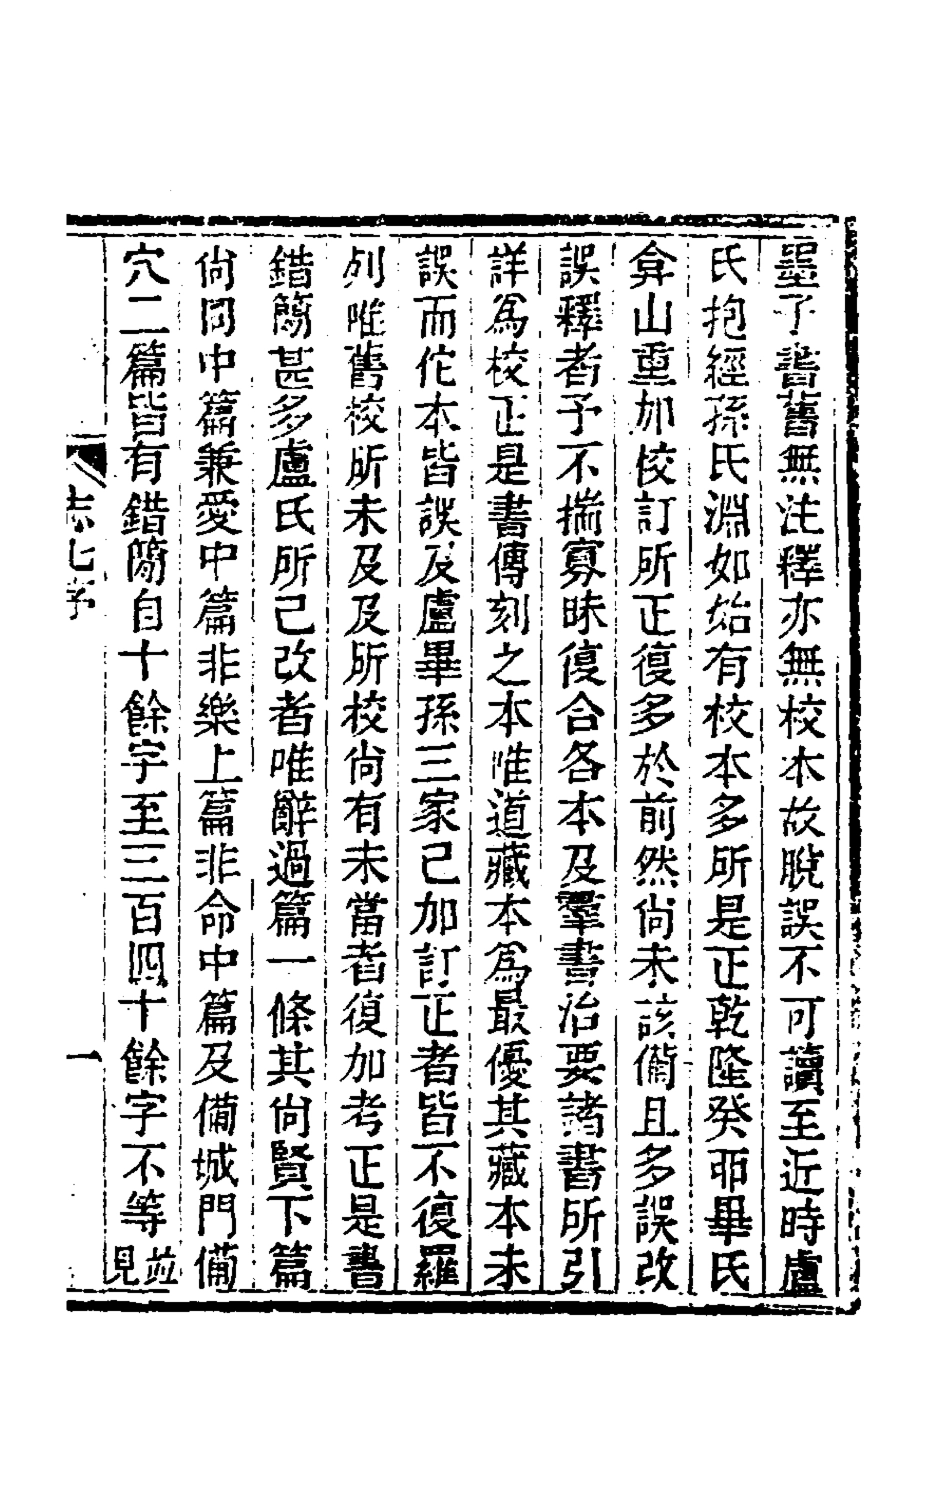 墨子書舊無注釋亦無校本故脫誤不可讀至近時盧
氏抱經孫氏淵如始有校本多所是正乾隆癸卯畢氏
弇山重加校訂所正復多於前然尚未該備且多誤改
誤釋者予不揣寡昧復合各本及羣書治要諸書所引
詳爲校正是書傳刻之本唯道藏本爲最優其藏本未
誤而佗本皆誤及盧畢孫三家已加訂正者皆不復羅
列唯舊校所未及及所校尚有未當者復加考正是書
錯簡甚多盧氏所已改者唯辭過篇一條其尚賢下篇
尚同中篇兼愛中篇非樂上篇非命中篇及備城門備
穴二篇皆有錯簡自十餘字至三百四十餘字不等並見
志七序
一